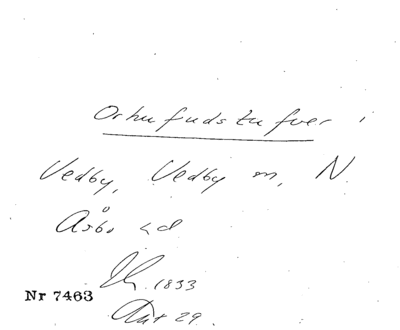 Orhufudstufver i
Vedby, Vedby sn, N.
Åsbo hd
1833
Nr 7463
29.